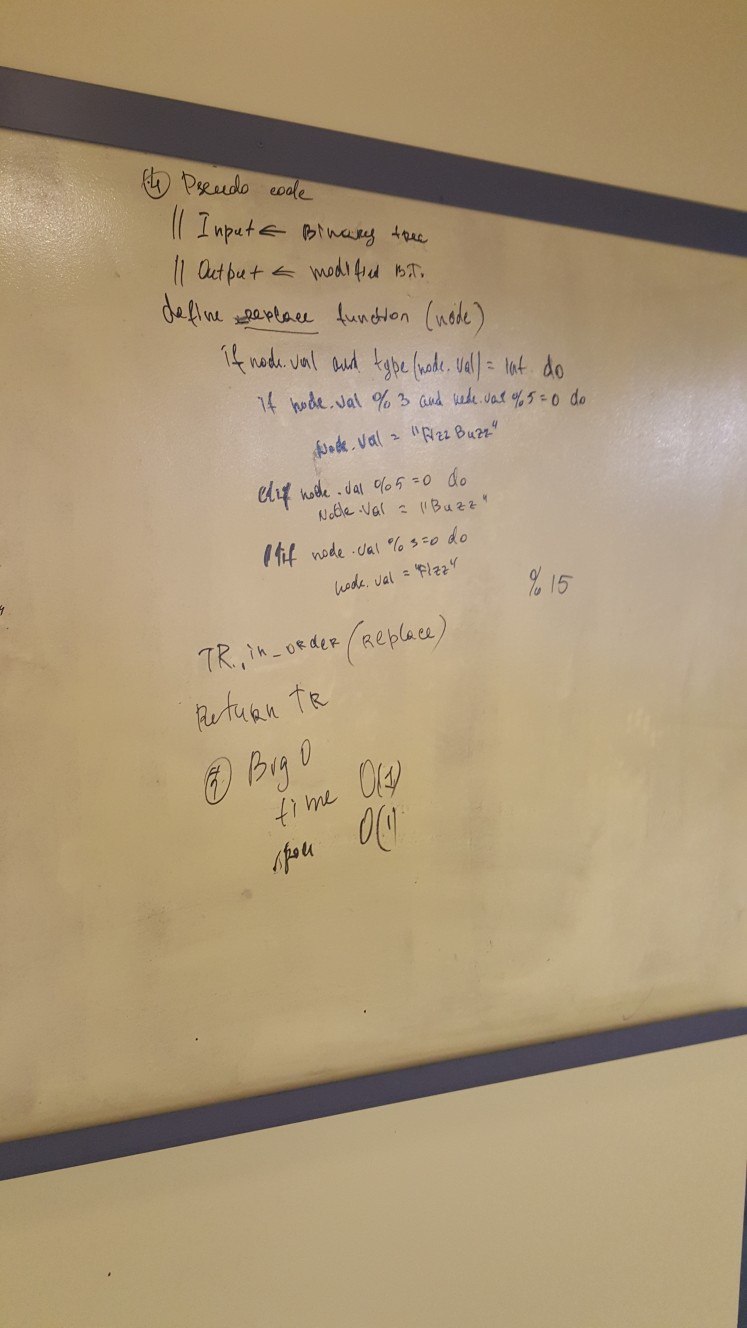 #4 Pseudo code
// Input ← Binary tree
// Output ← modified B.T.
define replace function (node)
if node.val and type(node.val) = int do
if node.val %3 and node.val %5=0 do
Node.val = "FizzBuzz"
elif node.val %5=0 do
Node.val = "Buzz"
elif node.val %3=0 do
node.val = "Fizz"
%15
TR.in_order(replace)
Return TR
Big O
time O(1)
space O(1)